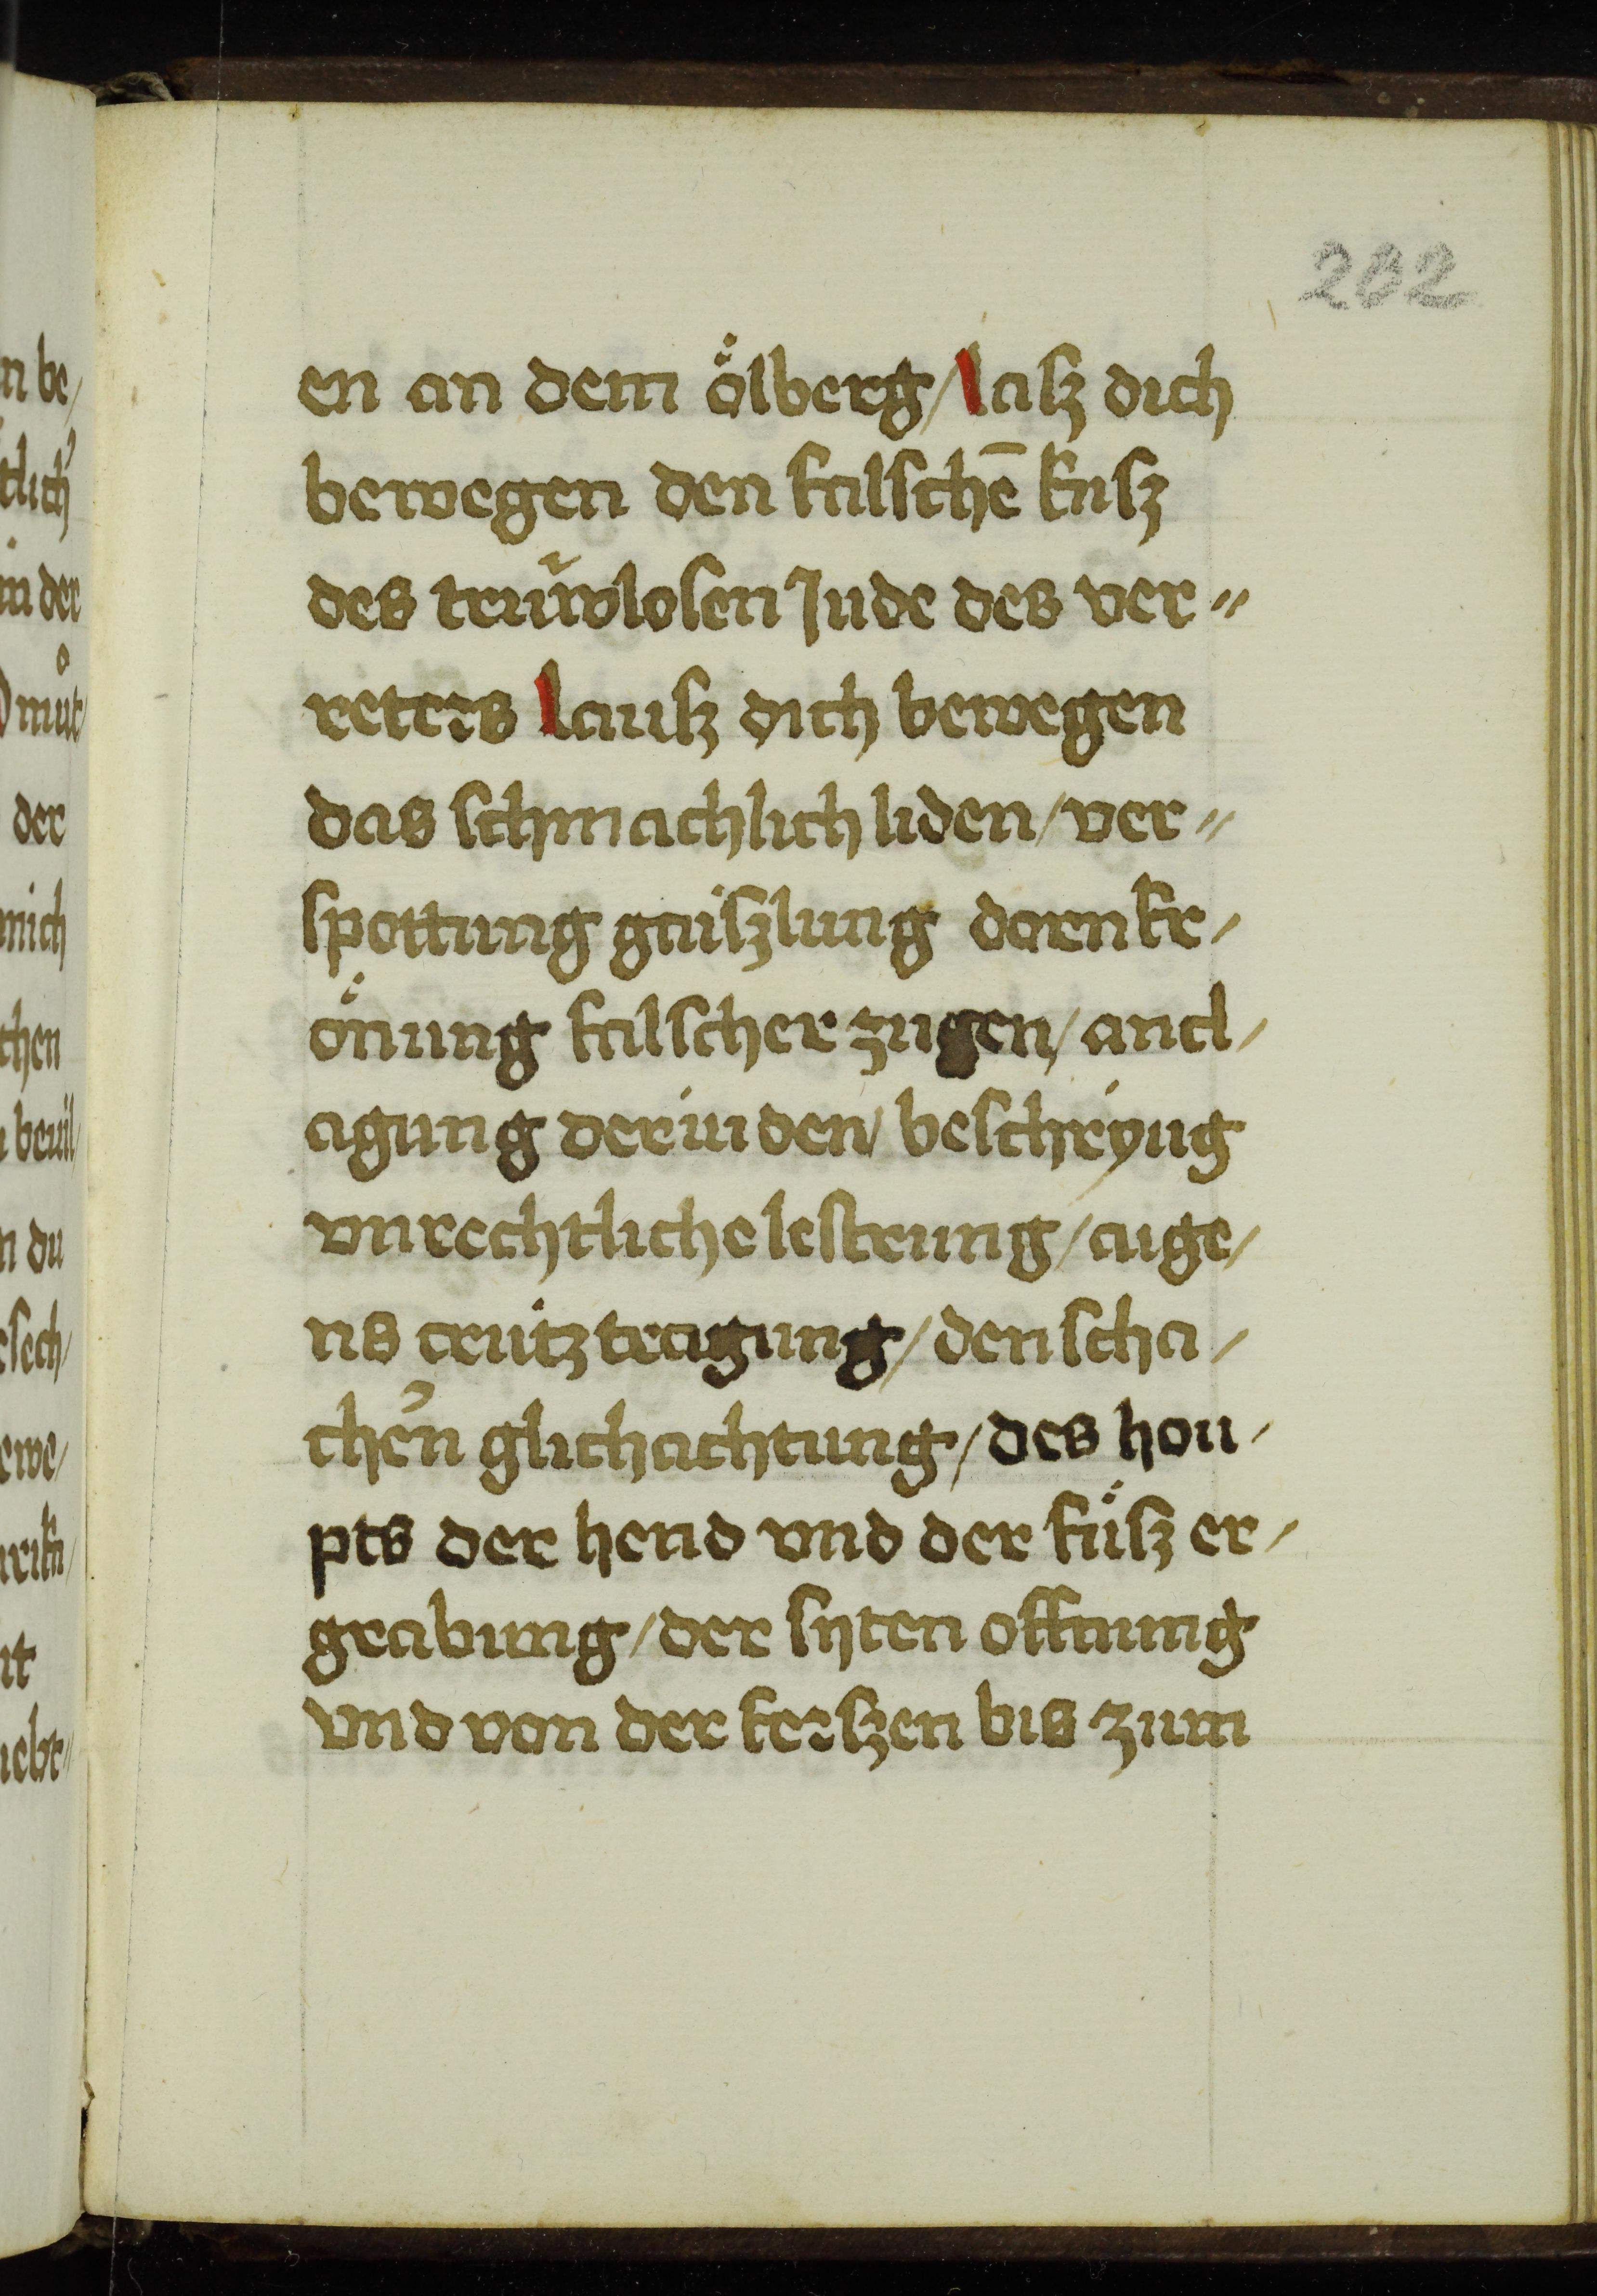 282
en an dem ölberg/ lasz dich
bewegen den falschē kusz
des trüwlosen Jude des ver〃
reters lausz dich bewegen
das schmachlich liden/ ver〃
spottung gaiszlung dornkr/
önung falscher zugen/ ancl/
agung der iuden/ beschryug
vnrechtliche lestrung/ aige/
ns crütztragung/ den scha/
chen̾ glichachtung/ des hou/
pts der hend vnd der füsz er/
grabung/ der syten offnung
vnd von der ferszen bis zum